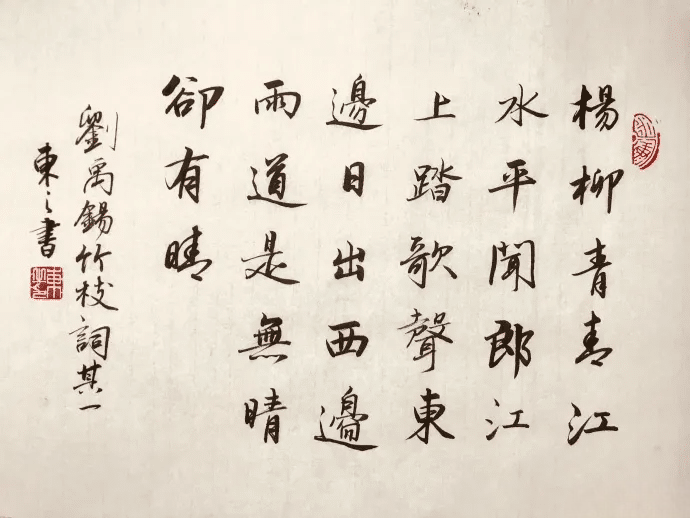 楊柳青青江
水平聞郎江
上踏歌聲東
邊日出西邊
雨道是無晴
卻有晴
劉禹錫竹枝詞其一
東之書